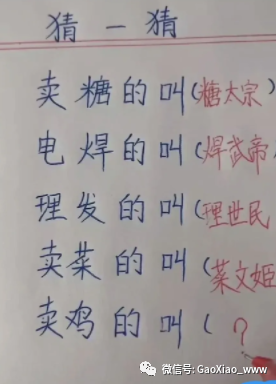 猜一猜
卖糖的叫(糖太宗)
电焊的叫(焊武帝
理发的叫(理世民
卖菜的叫(菜文姬
卖鸡的叫(?
微信号: GaoXiao_www